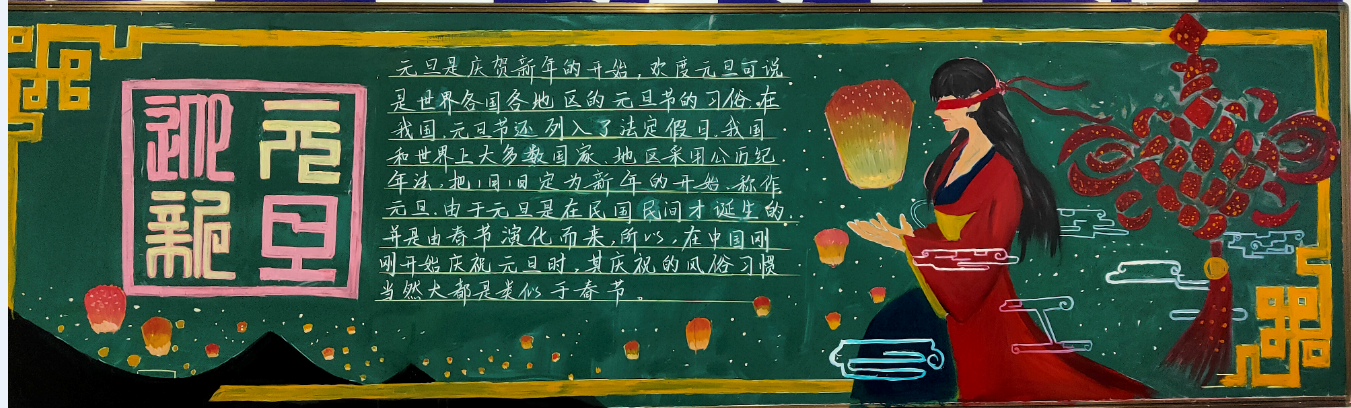 元旦
迎新
元旦是庆贺新年的开始，欢度元旦可说
是世界各国各地区的元旦节的习俗。在
我国，元旦节还列入了法定假日。我国
和世界上大多数国家、地区采用公历纪
年法，把1月1日定为新年的开始，称作
元旦。由于元旦是在民国民间才诞生的
并是由春节演化而来，所以，在中国刚
刚开始庆祝元旦时，其庆祝的风俗习惯
当然大都是类似于春节。